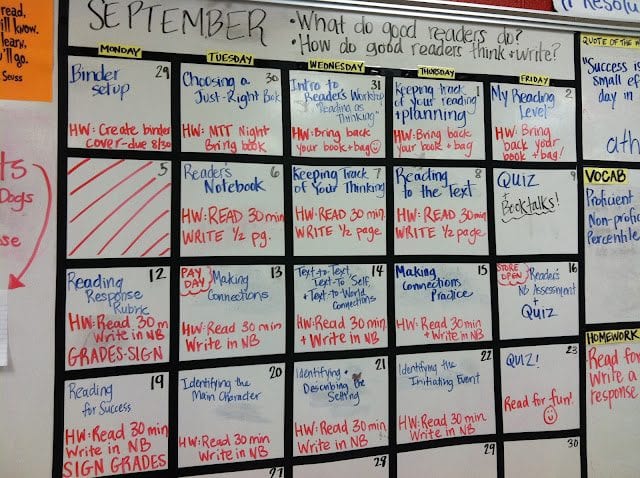 read,
ill know.
learn,
u'll go.
Seuss
SEPTEMBER
• What do good readers do?
• How do good readers think + write?
Resolu
MONDAY
TUESDAY
WEDNESDAY
THURSDAY
FRIDAY
QUOTE OF THE W
29
Binder
setup
HW: Create binder
cover-due 8/30
30
Choosing a
Just-Right Book
HW: MTT Night
Bring book
31
Intro to
Reader's Workshop
"Reading as
Thinking"
HW: Bring back
your book + bag
1
Keeping track
of your reading
+ planning
HW: Bring back
your book + bag
2
My Reading
Level
HW: Bring
back your
book + bag!
"Success is
small ef
day in
5
6
Reader's
Notebook
HW: READ 30 min
WRITE 1/2 pg.
7
Keeping Track
of Your Thinking
HW: READ 30 min.
WRITE 1/2 page
8
Reading
to the Text
HW: READ 30 min.
WRITE 1/2 page.
9
QUIZ
+
Booktalks!
ts
Dogs
ose
VOCAB
Proficient
Non-profic
Percentile
12
Reading
Response
Rubric
HW: Read 30 m
Write in NB
GRADES-SIGN
13
PAY
DAY
Making
Connections
HW: Read 30 min
Write in NB
14
Text-to-Text,
Text-To Self,
+ Text-to-World
Connections
HW: Read 30 min
+ Write in NB
15
Making
Connections
Practice
HW: Read 30 min
+ Write in NB
16
STORE
OPEN
Reader's
NB Assessment
+
QUIZ
HOMEWORK
Read for
Write a
response
19
Reading
for Success
HW: Read 30 min
Write in NB
SIGN GRADES
20
Identifying the
Main Character
HW: Read 30 min
Write in NB
21
Identifying +
Describing the
Setting
HW: Read 30 min
Write in NB
22
Identifying the
Initiating Event
HW: Read 30 min
Write in NB
23
QUIZ!
Read for fun!
27
28
29
30